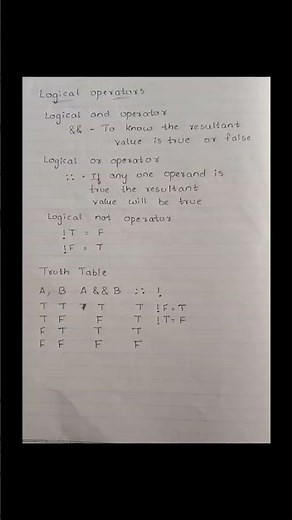 Logical operators
Logical and operator
&& - To know the resultant
value is true or false
Logical or operator
:: - If any one operand is
true the resultant
value will be true
Logical not operator
!T = F
!F = T
Truth Table
A, B A && B :: !
T T T T !F = T
T F F T !T = F
F T T T
F F F F